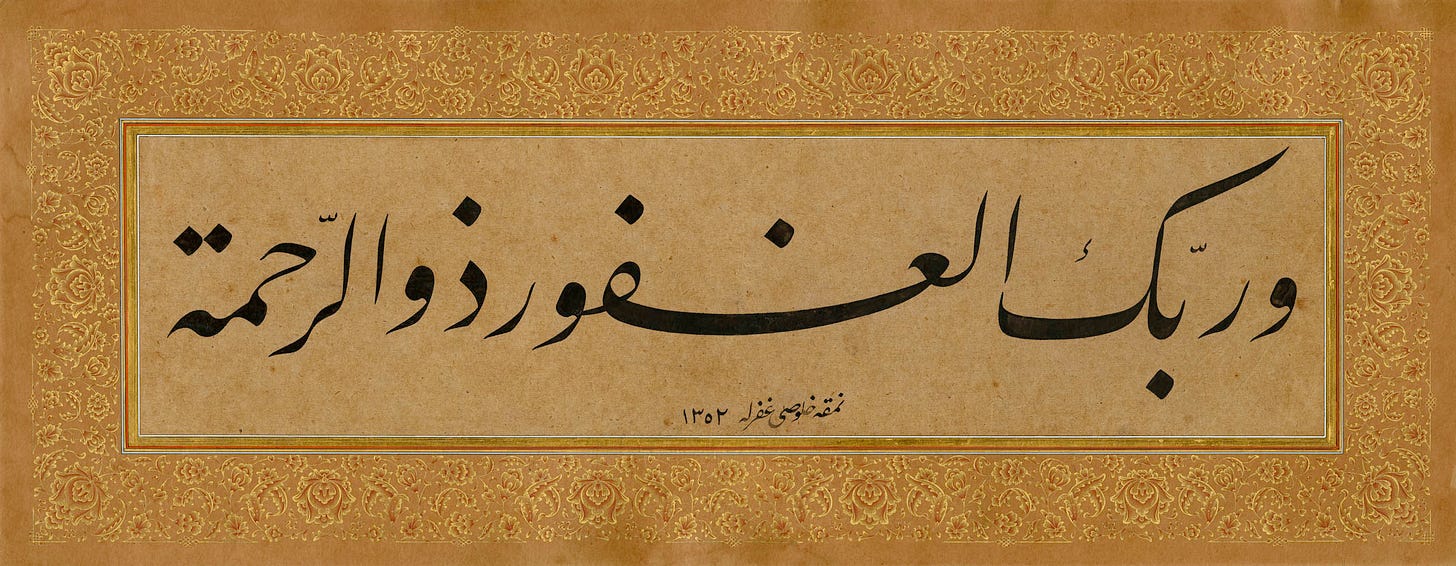 وربّك الغفور ذو الرّحمة
نمقه خلوصي غفرله ١٣٥٢